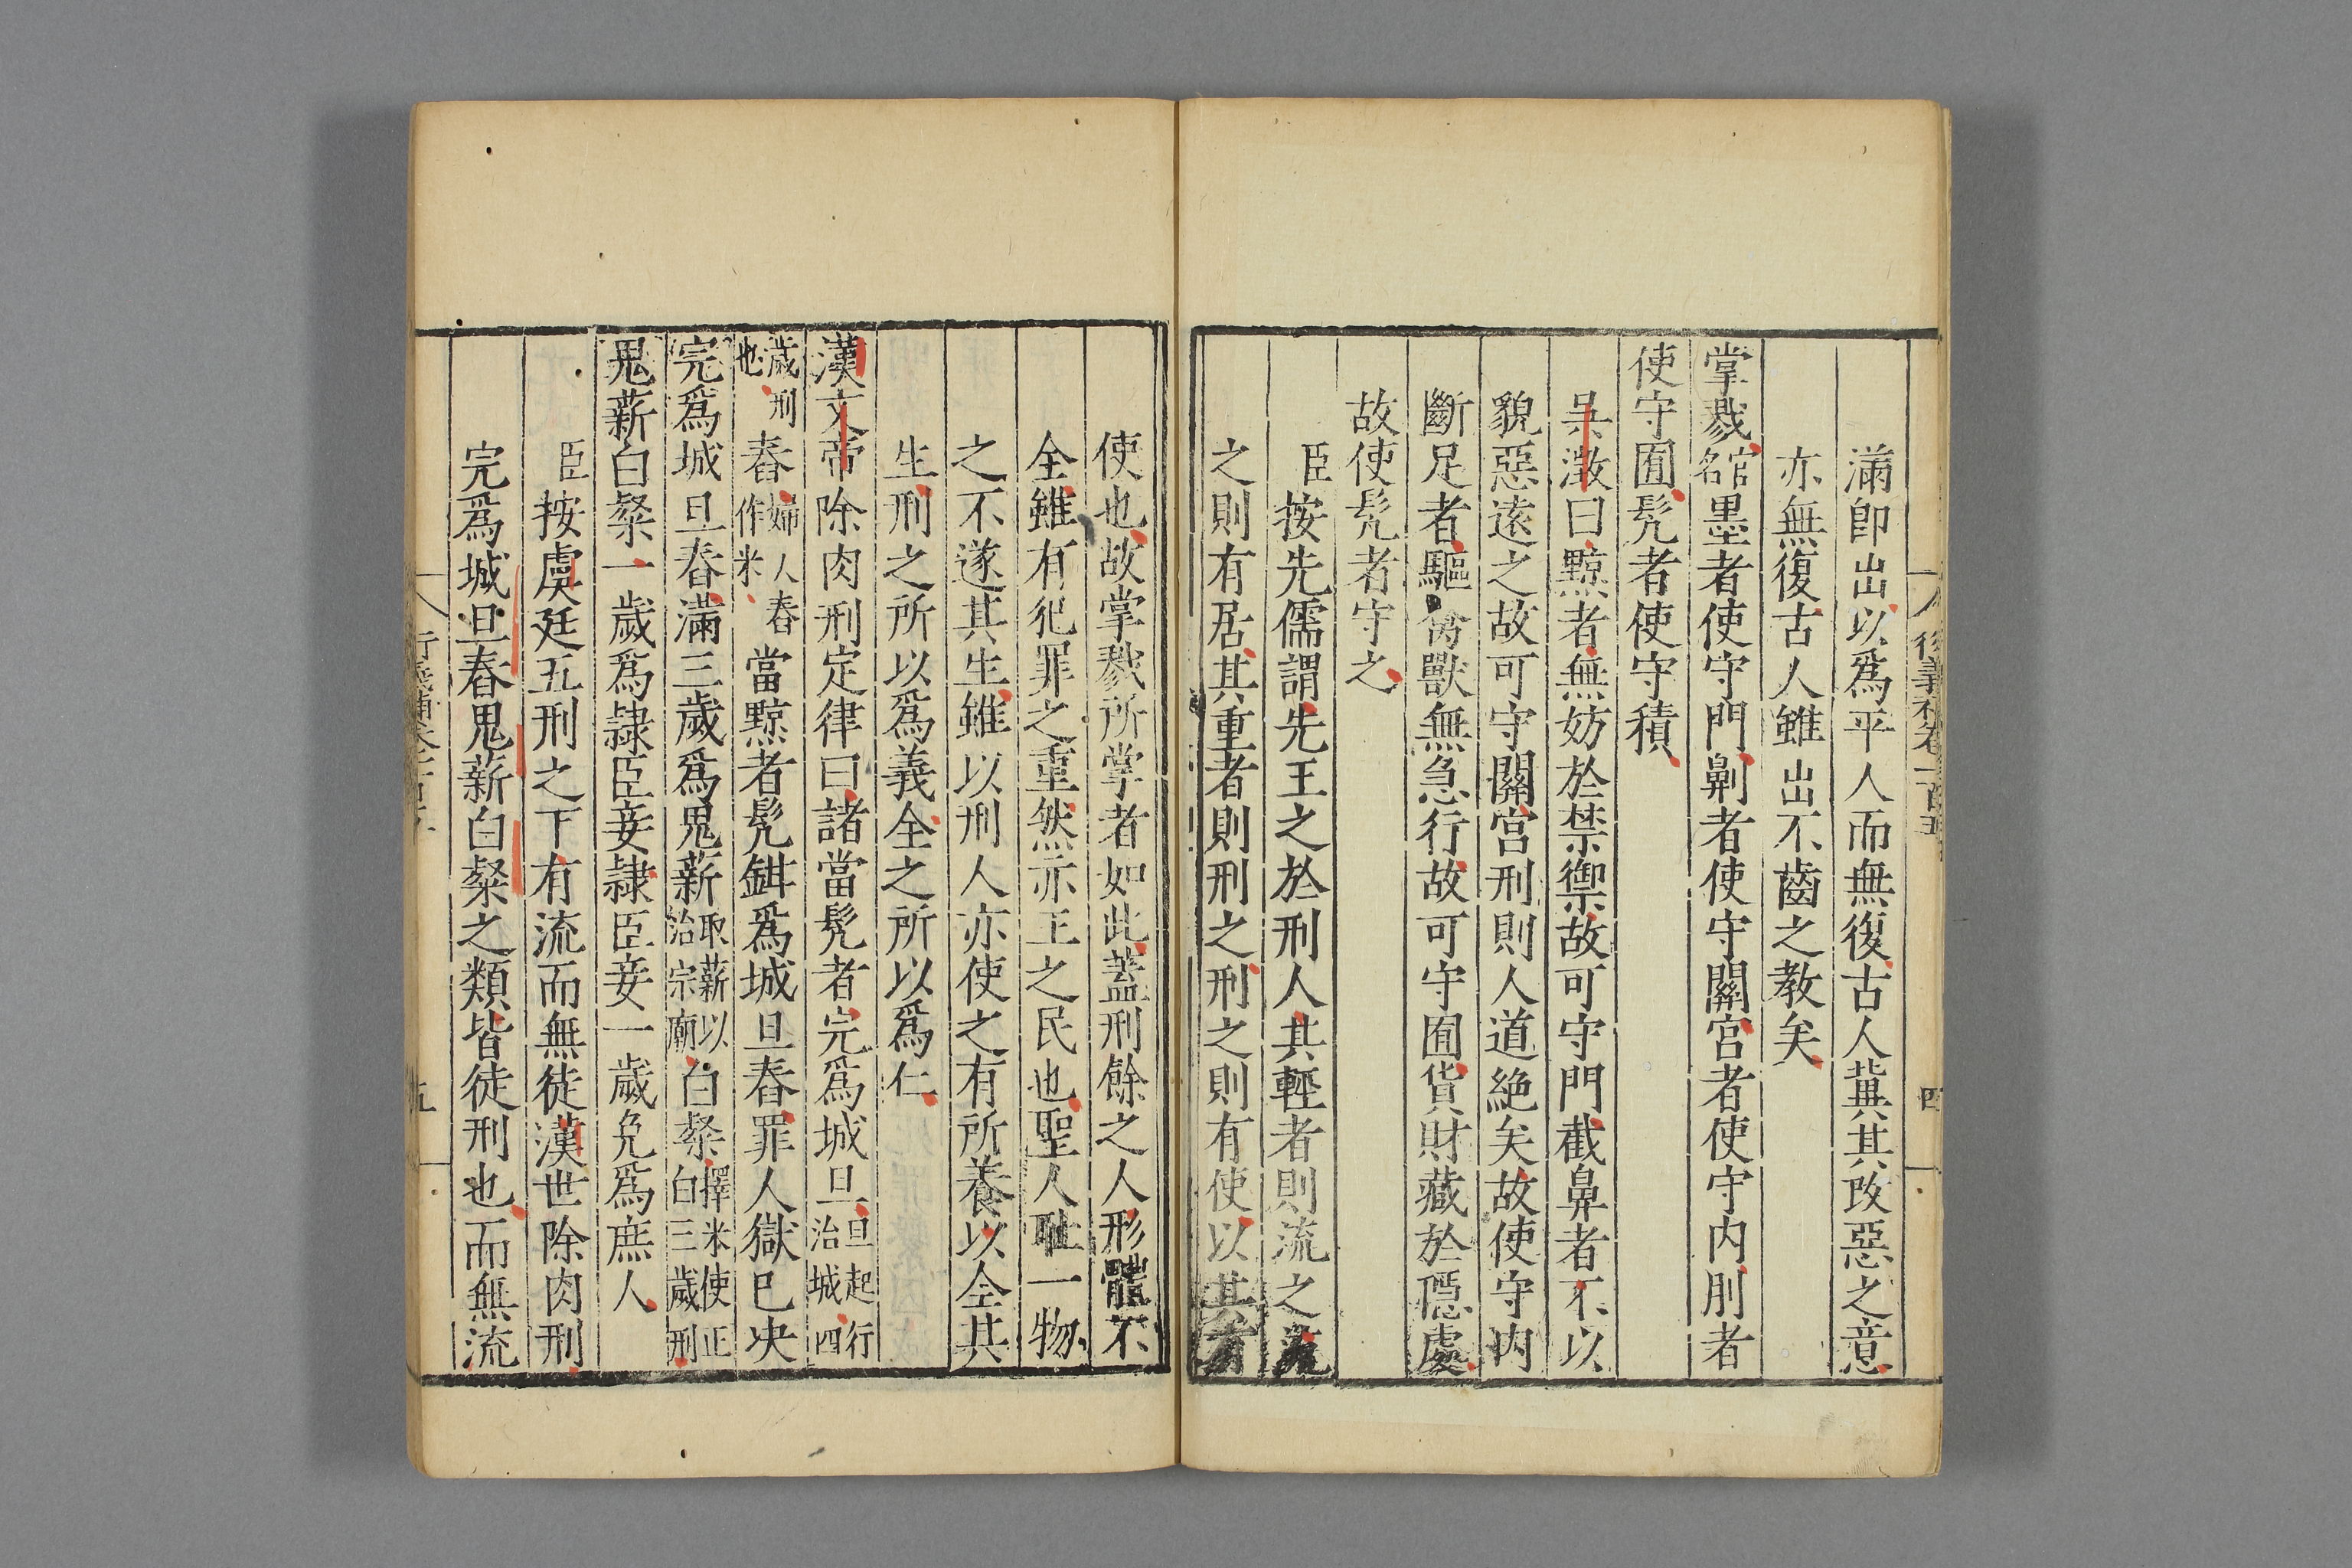 滿即出以爲平人而無復古人冀其改惡之意
亦無復古人雖出不齒之教矣
掌戮官名墨者使守門劓者使守關宮者使守内刖者
使守囿髡者使守積
吳澂曰黥者無妨於禁禦故可守門截鼻者不以
貌惡遠之故可守關宮刑則人道絶矣故使守内
斷足者驅禽獸無急行故可守囿貨財藏於隱處
故使髡者守之
臣按先儒謂先王之於刑人其輕者則流之流
之則有居其重者則刑之刑之則有使以其
使也故掌戮所掌者如此蓋刑餘之人形體不
全雖有犯罪之重然亦王之民也聖人耻一物
之不遂其生雖以刑人亦使之有所養以全其
生刑之所以爲義全之所以爲仁
漢文帝除肉刑定律曰諸當髡者完爲城旦旦起行治城四
歲刑也舂婦人舂作米當黥者髡鉗爲城旦舂罪人獄已决
完爲城旦舂滿三歲爲鬼薪取薪以治宗廟白粲擇米使正白三歲刑
鬼薪白粲一歲爲隷臣妾隷臣妾一歲免爲庶人
臣按虞廷五刑之下有流而無徒漢世除肉刑
完爲城旦舂鬼薪白粲之類皆徒刑也而無流